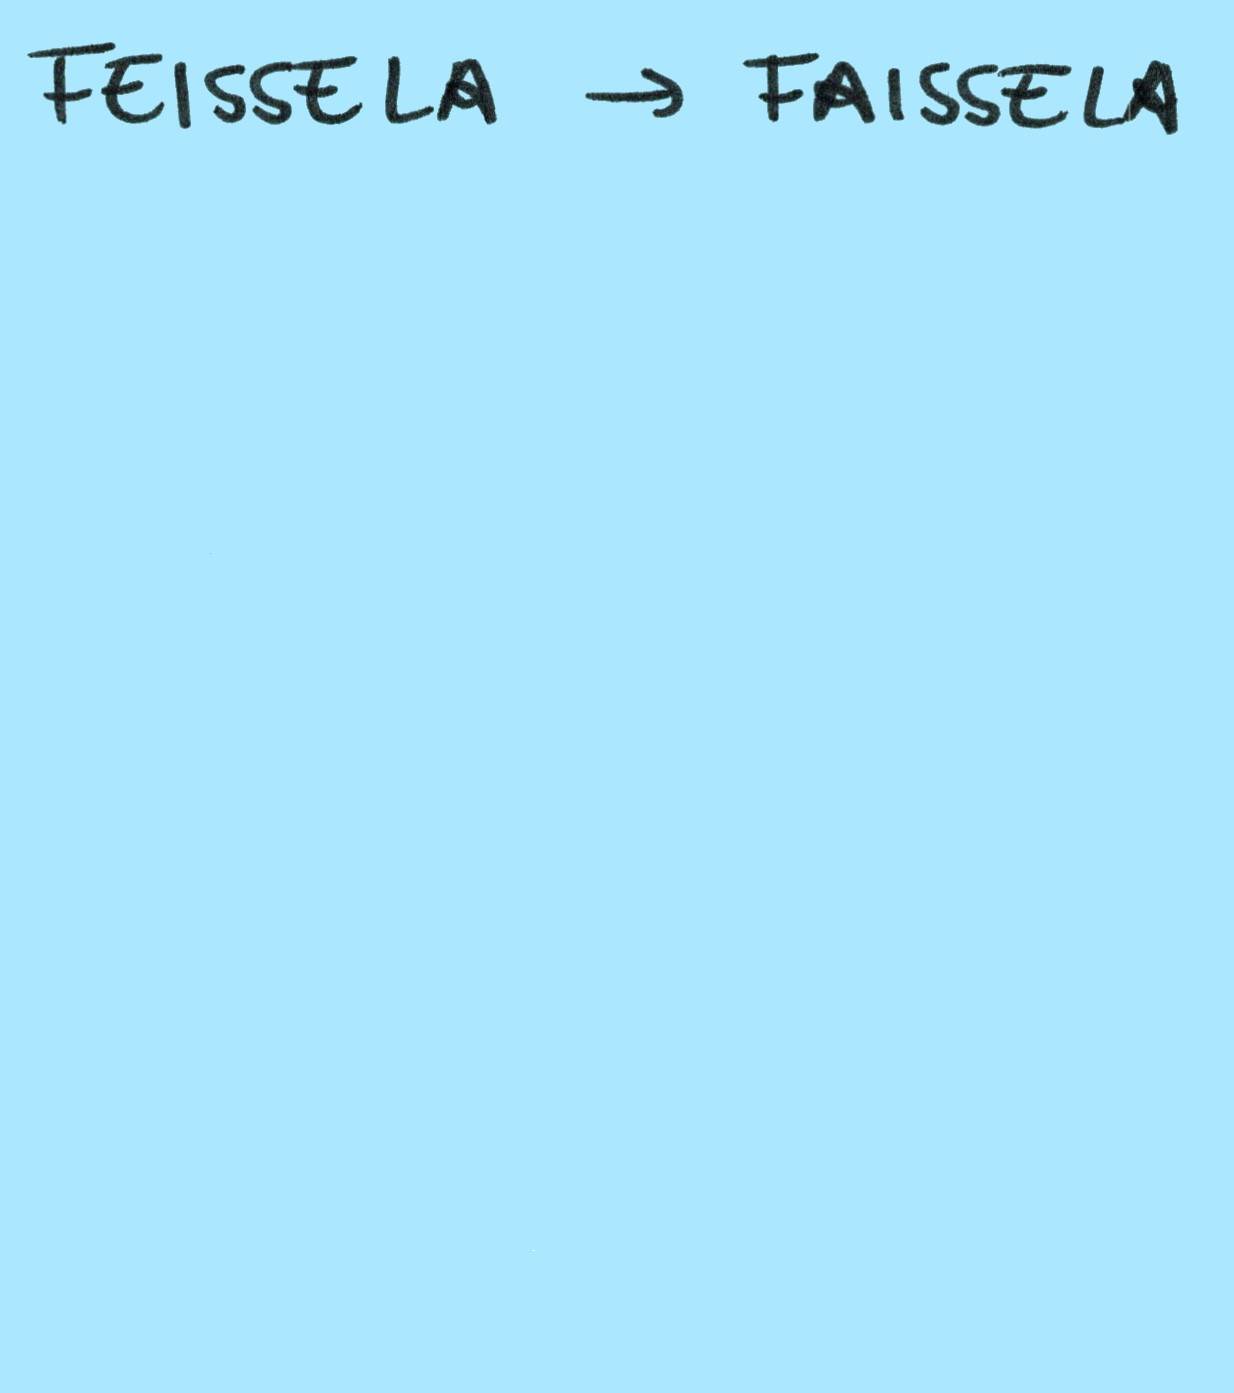 FEISSELA → FAISSELA